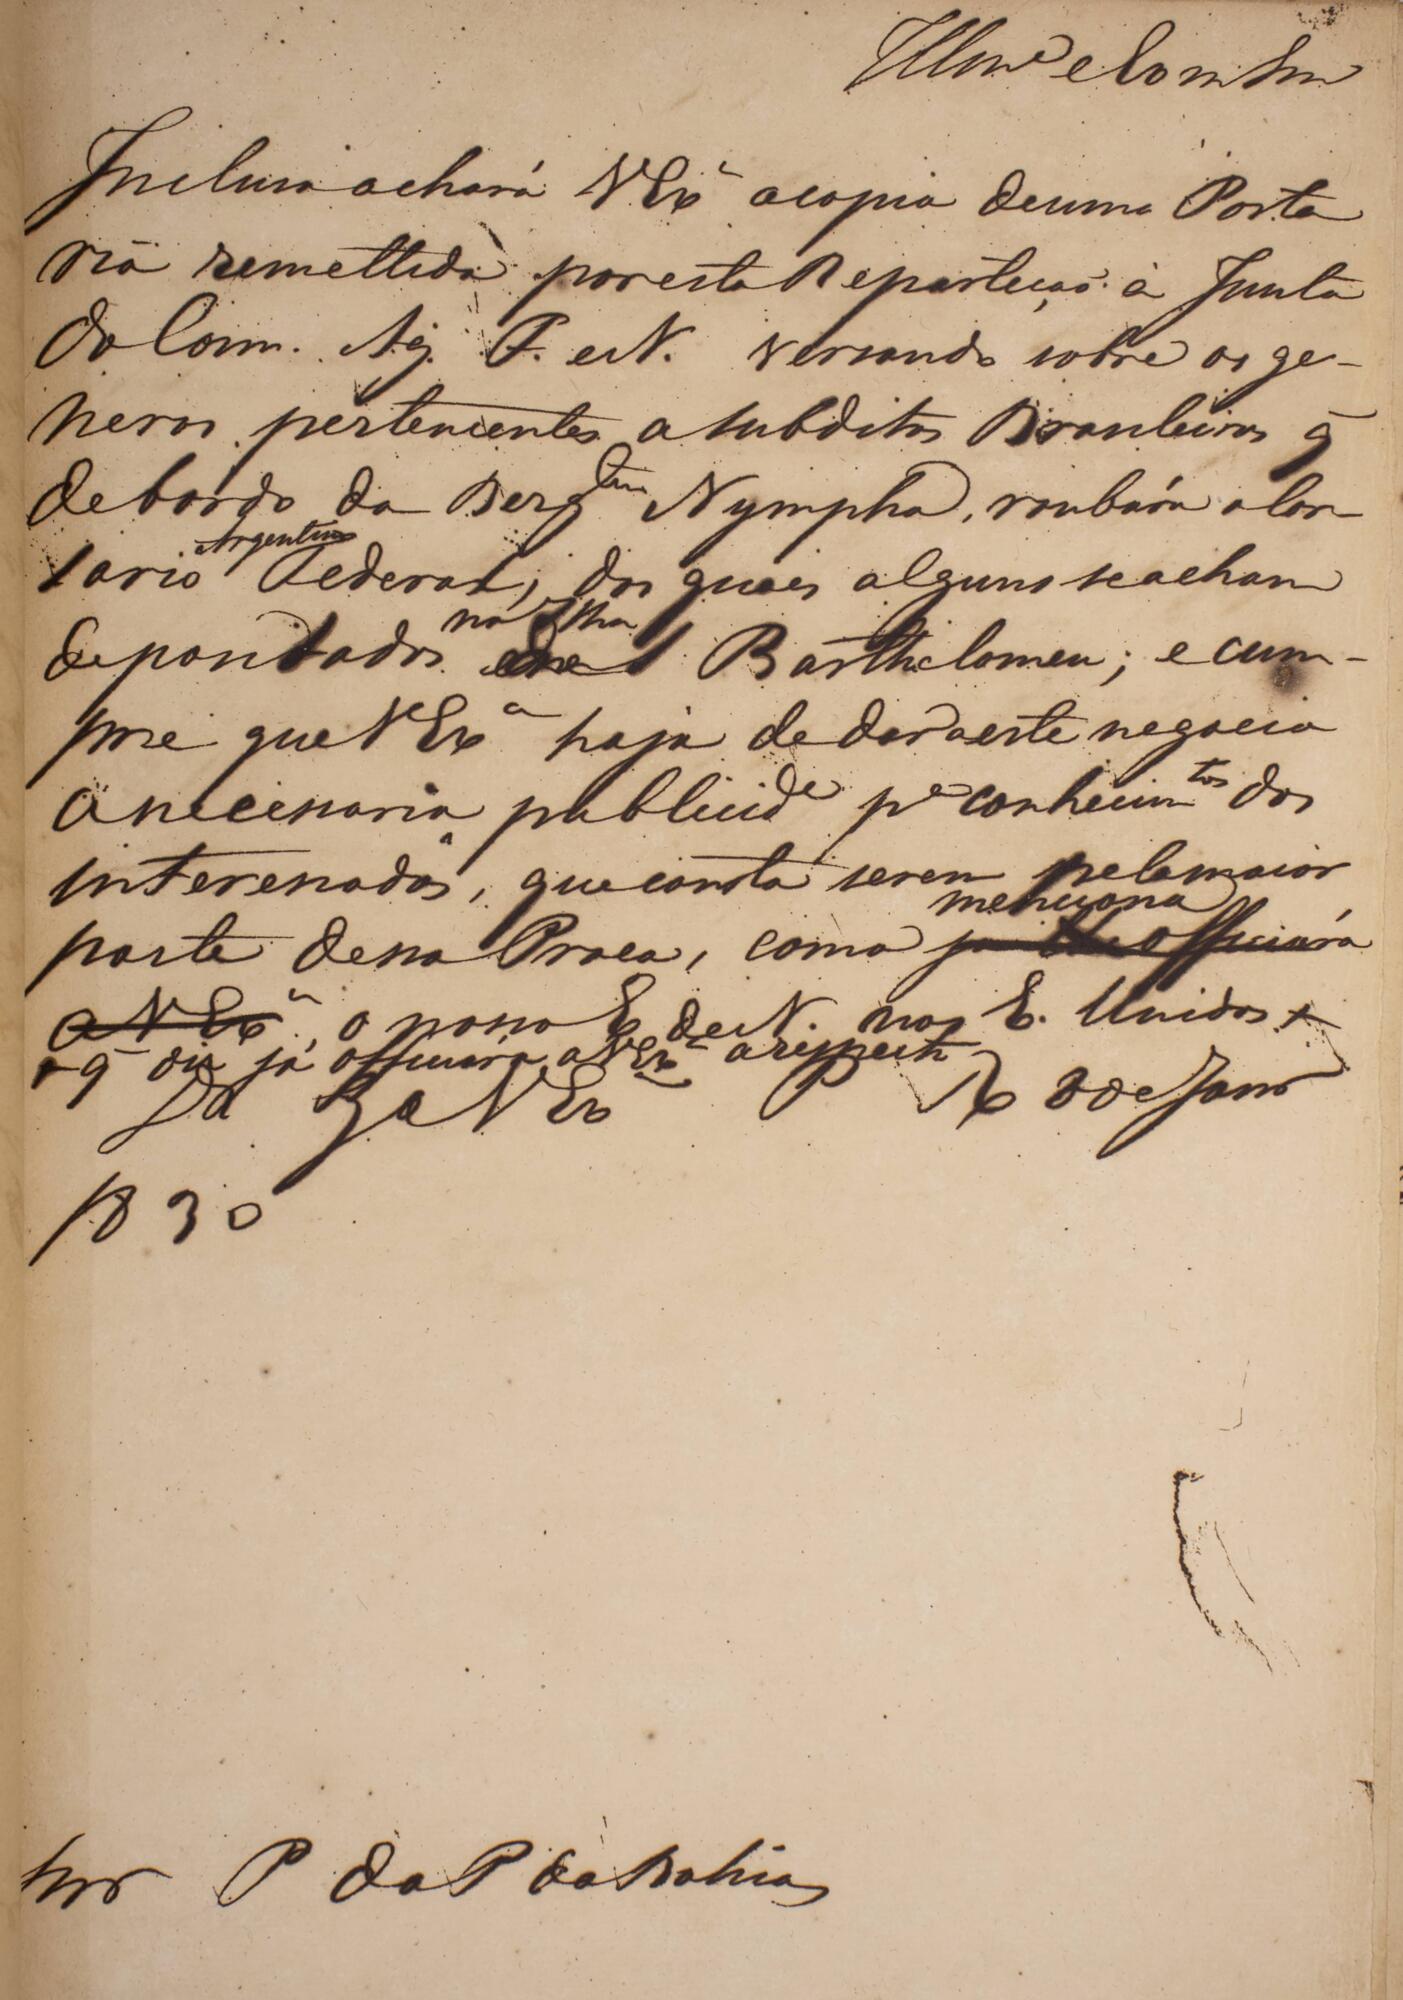 Illmo e Exmo Snr
Inclusa achará V Exª a copia de uma Porta
ria remettida por esta Repartição á Junta
do Com. Ag. F. e N. versando sobre os ge-
neros pertencentes a subditos Brasileiros q̃
de bordo do Bergtim Nympha, roubára o Cor-
sario Argentino Federal, dos quaes alguns se acham
depositados na Ilha S Bartholomeu; e cum-
pre que V Exª haja de dar a este negocio
a necessaria publicide pª conhecimto dos
interessados, que consta serem pela maior
parte dessa Praça, como já officiára menciona
a V Exª, o nosso E. de N. nos E. Unidos +
+ q̃ diz já officiára a V Exª a respeito
Ds Ge a V Ex P R 8 de Janro
1830
Snr P da P da Bahia